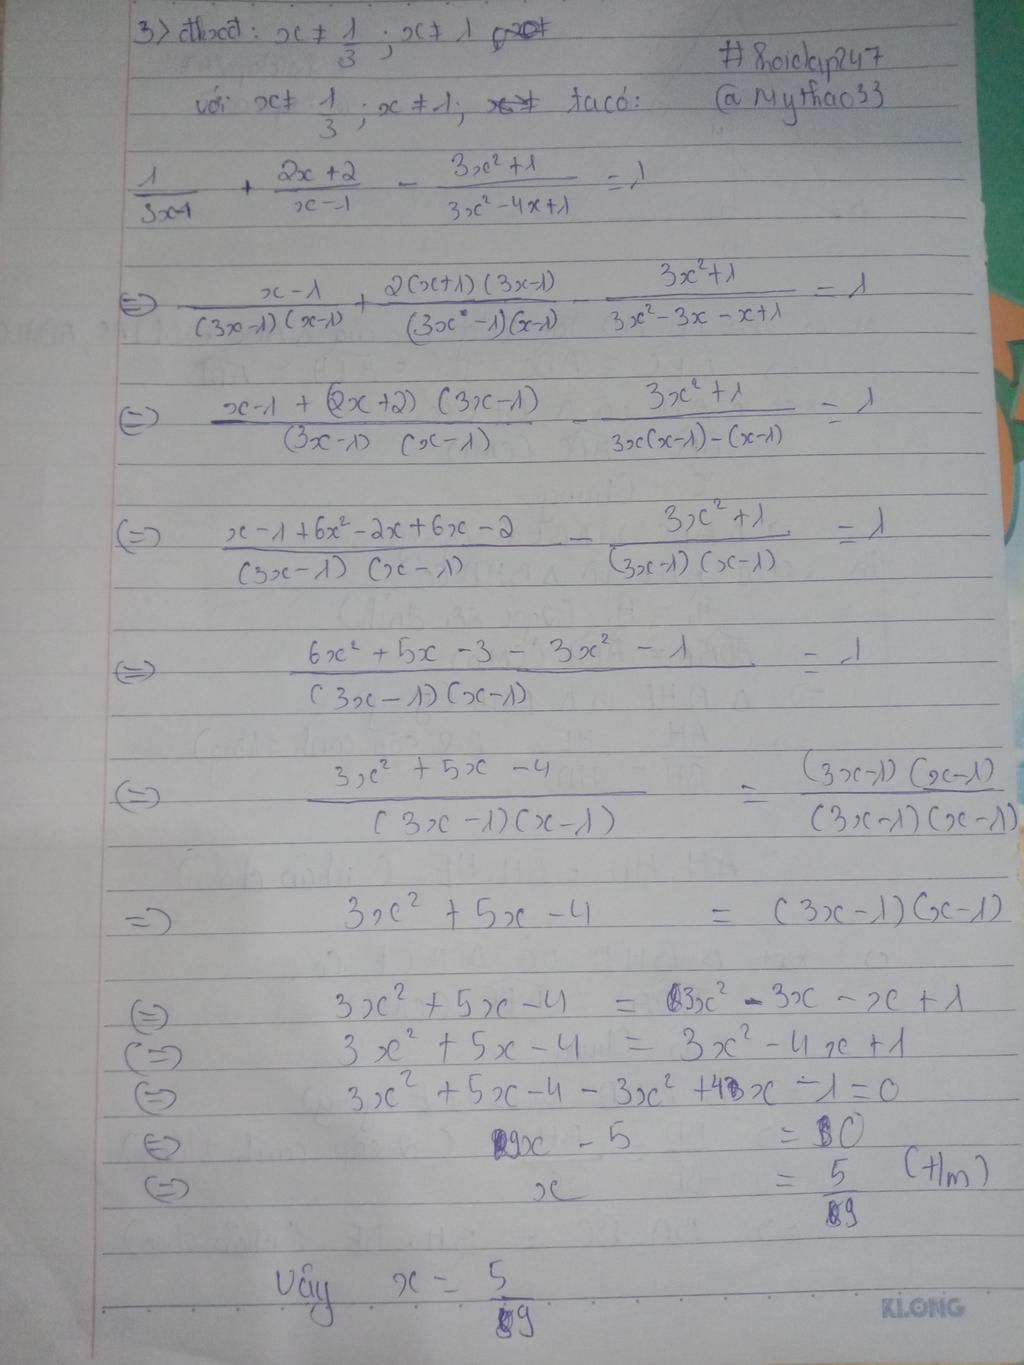 3> đkxđ: x ≠ 1/3 ; x ≠ 1
#hoidap247
với x ≠ 1/3 ; x ≠ 1; ta có:
@Mythao33
1/(3x-1) + (2x+2)/(x-1) - (3x²+1)/(3x²-4x+1) = 1
(=) (x-1)/((3x-1)(x-1)) + (2(x+1)(3x-1))/((3x-1)(x-1)) - (3x²+1)/(3x²-3x-x+1) = 1
(=) (x-1+(2x+2)(3x-1))/((3x-1)(x-1)) - (3x²+1)/(3x(x-1)-(x-1)) = 1
(=) (x-1+6x²-2x+6x-2)/((3x-1)(x-1)) - (3x²+1)/((3x-1)(x-1)) = 1
(=) (6x²+5x-3-3x²-1)/((3x-1)(x-1)) = 1
(=) (3x²+5x-4)/((3x-1)(x-1)) = ((3x-1)(x-1))/((3x-1)(x-1))
=) 3x²+5x-4 = (3x-1)(x-1)
(=) 3x²+5x-4 = 3x²-3x-x+1
(=) 3x²+5x-4 = 3x²-4x+1
(=) 3x²+5x-4-3x²+4x-1=0
(=) 9x-5 = 0
(=) x = 5/9 (t/m)
Vậy x = 5/9
KLONG